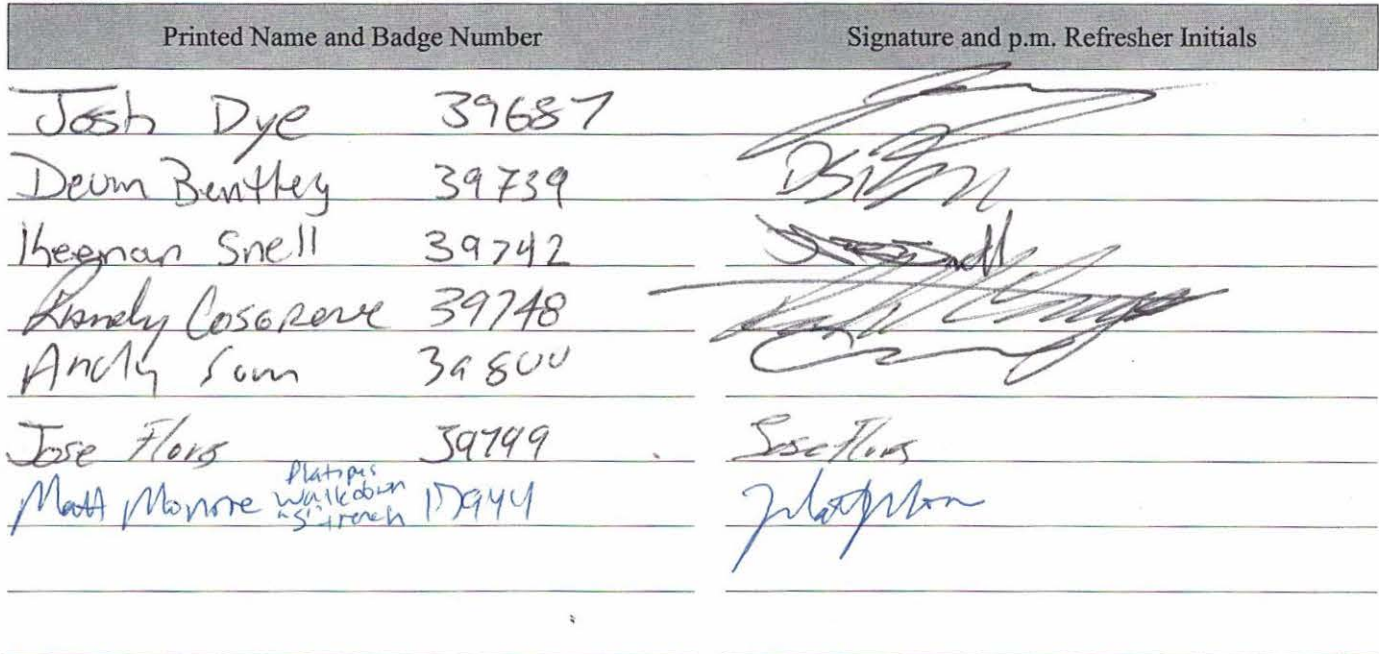 Printed Name and Badge Number Signature and p.m. Refresher Initials
Josh Dye 39687
Devin Bentley 39739
Keenan Snell 39742 Snell
Randy Cosgrove 39748
Andy Sam 39800
Jose Flors 39799 Jose Flors
Matt Monroe Platipus Walkdown "S" trench 17944